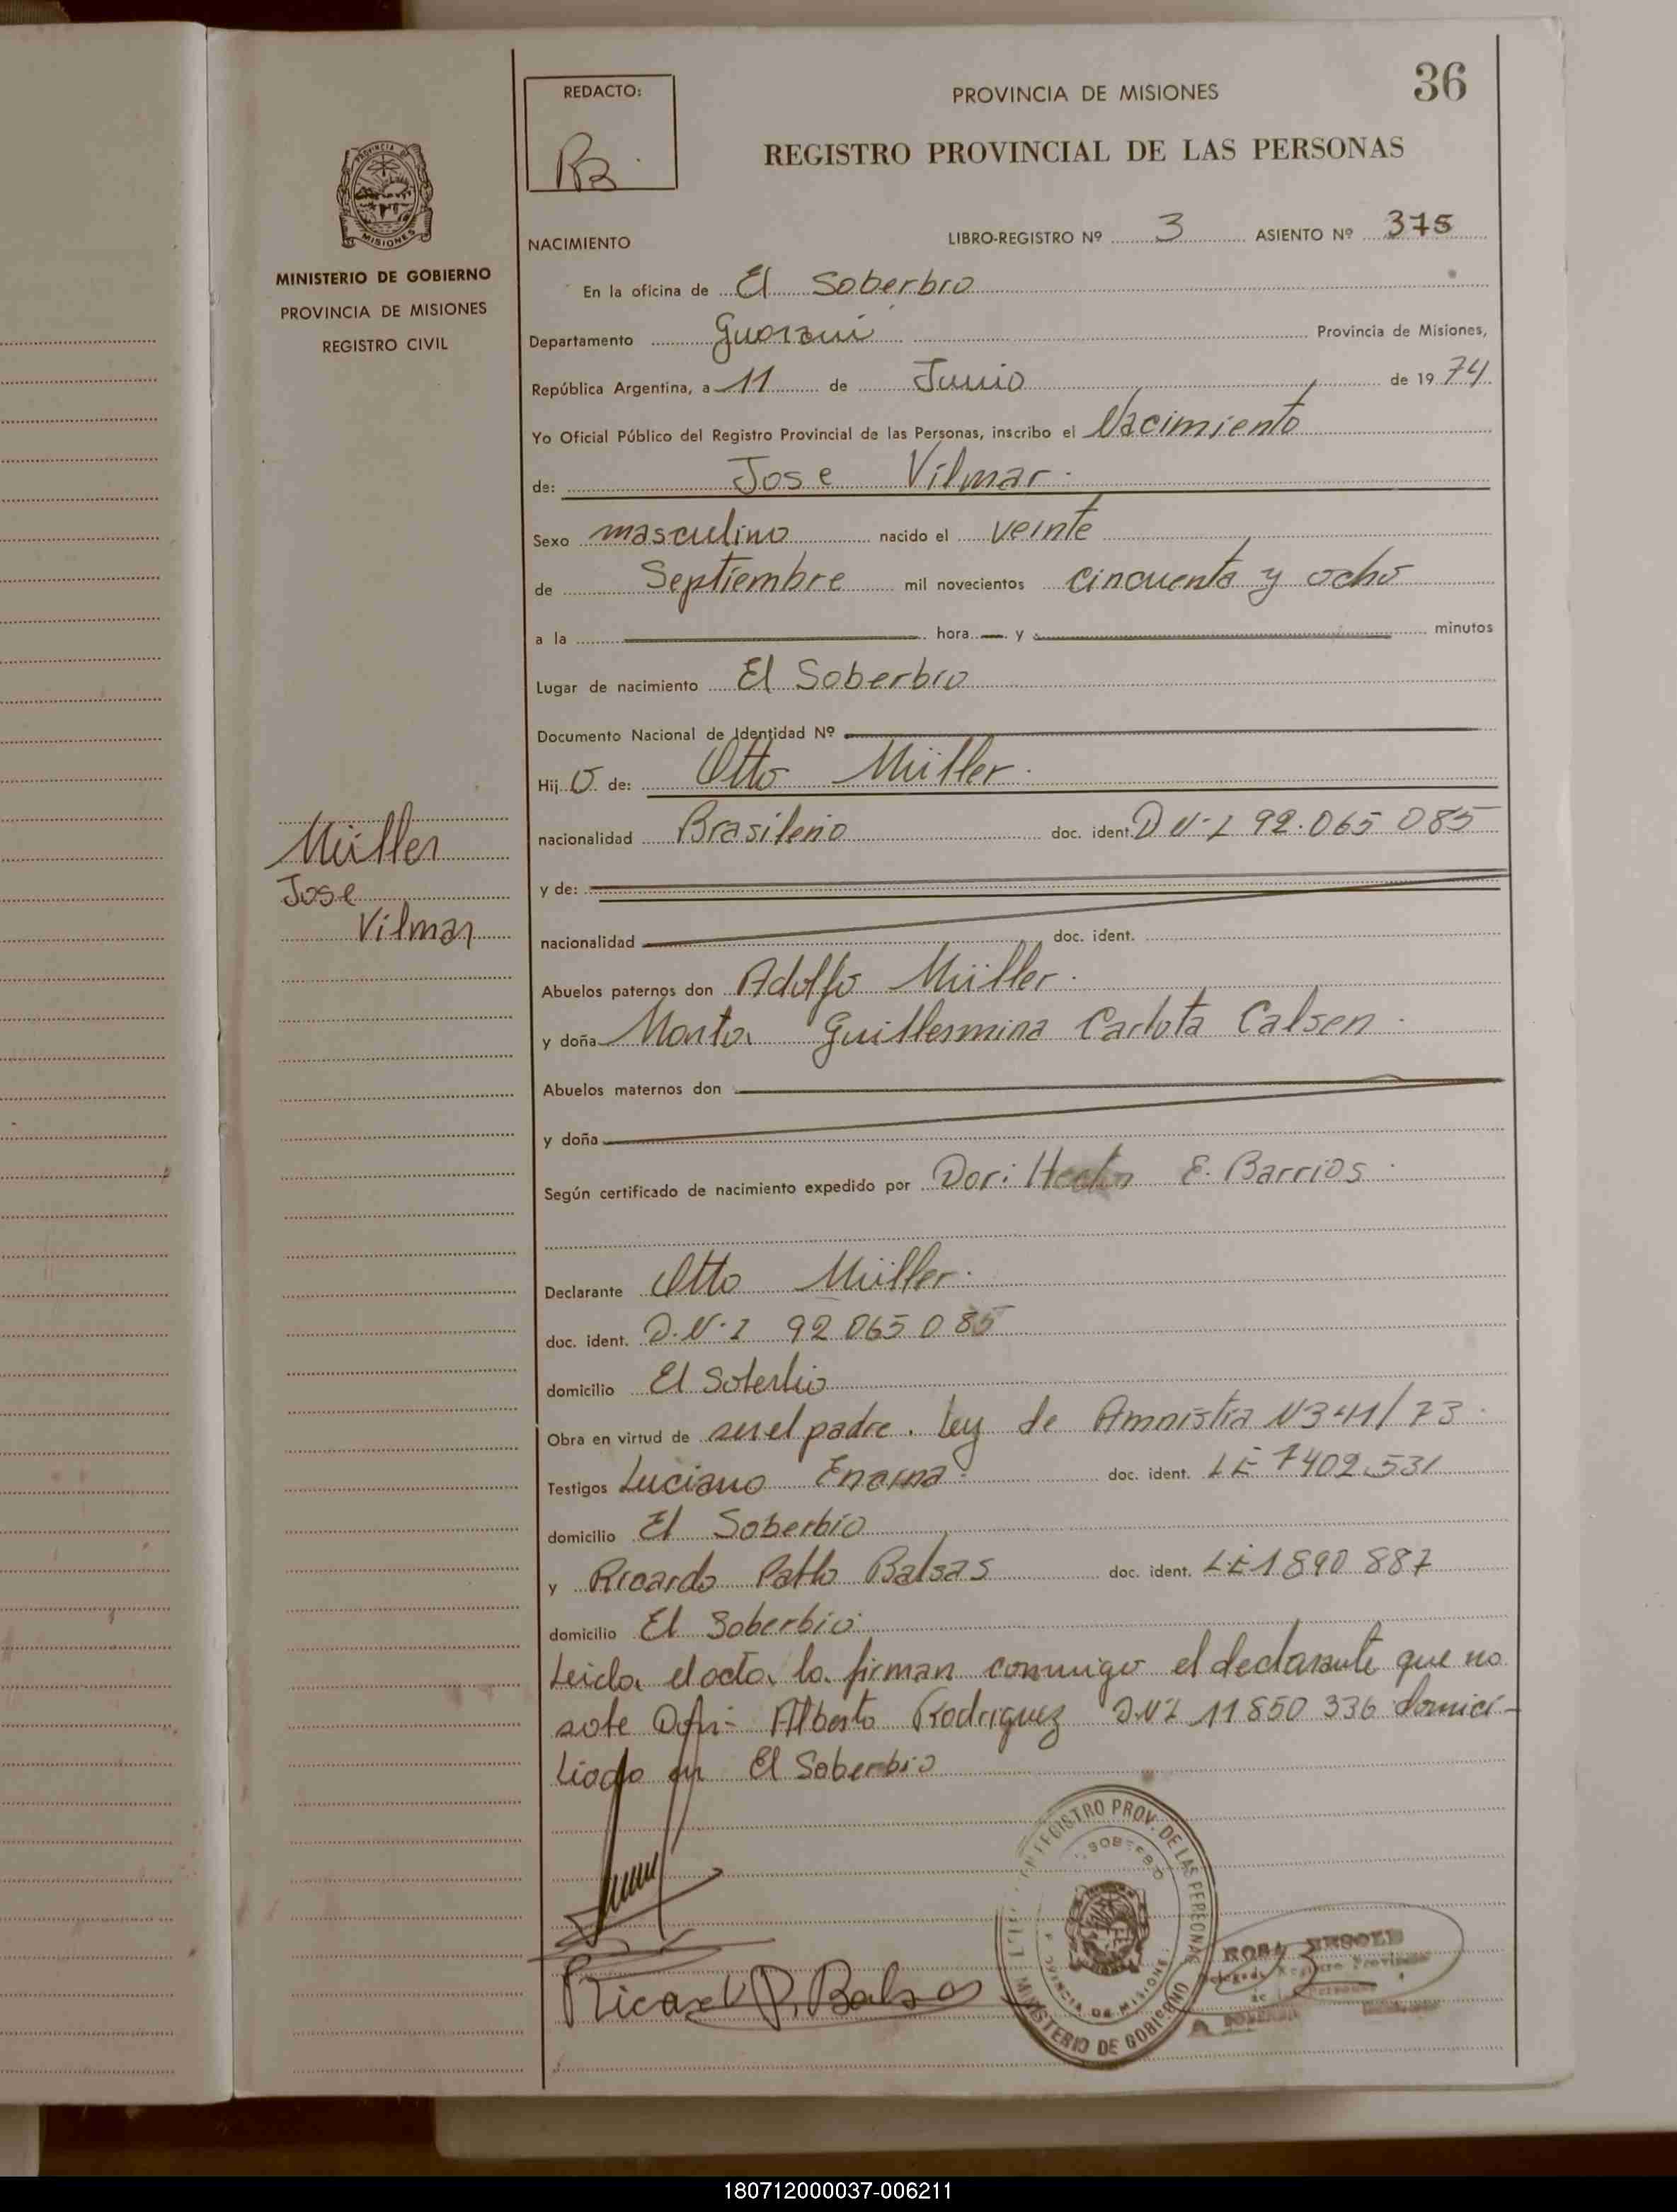 36
REDACTO:
PROVINCIA DE MISIONES
REGISTRO PROVINCIAL DE LAS PERSONAS
PROVINCIA DE
MISIONES
MINISTERIO DE GOBIERNO
PROVINCIA DE MISIONES
REGISTRO CIVIL
NACIMIENTO
LIBRO-REGISTRO Nº 3 ASIENTO Nº 375
En la oficina de El Soberbio
Departamento Guarani Provincia de Misiones,
República Argentina, a 11 de Junio de 1974
Yo Oficial Público del Registro Provincial de las Personas, inscribo el Nacimiento
de: Jose Vilmar
Sexo masculino nacido el veinte
de Septiembre mil novecientos cincuenta y ocho
a la hora y minutos
Lugar de nacimiento El Soberbio
Documento Nacional de Identidad Nº
Hijo de: Otto Müller
nacionalidad Brasileño doc. ident. D.N.I 92.065 085
Müller
Jose
Vilmar
y de:
nacionalidad doc. ident.
Abuelos paternos don Adolfo Müller
y doña Marta Guillermina Carlota Calsen
Abuelos maternos don
y doña
Según certificado de nacimiento expedido por Dor: Hector E. Barrios
Declarante Otto Müller
doc. ident. D.N.I 92 065 085
domicilio El Soberbio
Obra en virtud de ser el padre. Ley de Amnistia N 341/73
Testigos Luciano doc. ident. LE 7402.531
domicilio El Soberbio
y Ricardo Pablo Balsas doc. ident. L.E 1 890 887
domicilio El Soberbio
Leida el acta la firman conmigo el declarante que no
sabe Alberto Rodriguez D.N.I 11 850 336 domici-
liado en El Soberbio
Ricardo P. Balsas
REGISTRO PROV. DE LAS PERSONAS
MINISTERIO DE GOBIERNO
SOBERBIO
PROVINCIA DE MISIONES
ROSA
180712000037-006211